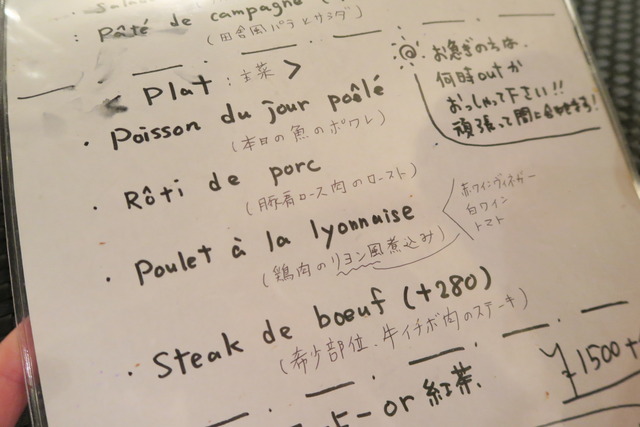 Pâté de campagne
(田舎風パテとサラダ)
Plat : 主菜 >
・Poisson du jour poêlé
(本日の魚のポワレ)
・Rôti de porc
(豚肩ロース肉のロースト)
・Poulet à la lyonnaise
(鶏肉のリヨン風煮込み)
赤ワインヴィネガー
白ワイン
トマト
・Steak de boeuf (+280)
(希少部位、牛イチボ肉のステーキ)
or 紅茶
¥1500+
お急ぎの方は、
何時outか
おっしゃって下さい!!
頑張って間に合わせる!